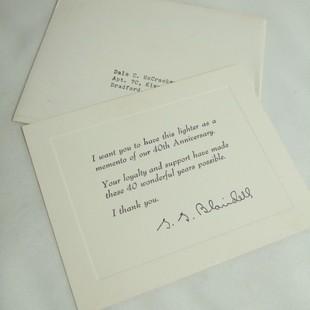 Dale C. McCracke
Apt. 7C,
Bradford,
I want you to have this lighter as a
memento of our 40th Anniversary.
Your loyalty and support have made
these 40 wonderful years possible.
I thank you.
G. G. Blaisdell